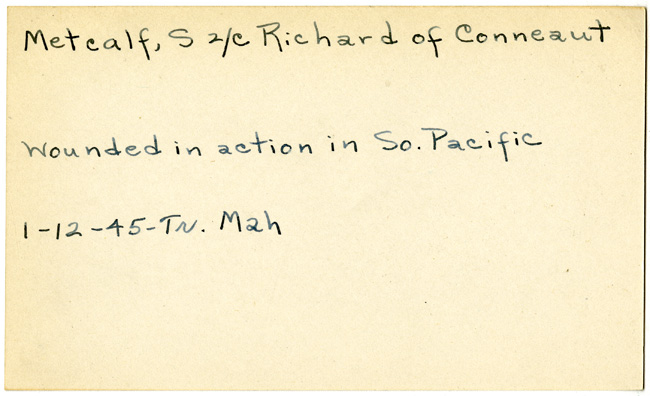 Metcalf, S 2/c Richard of Conneaut
Wounded in action in So. Pacific
1-12-45-Tr. Mah